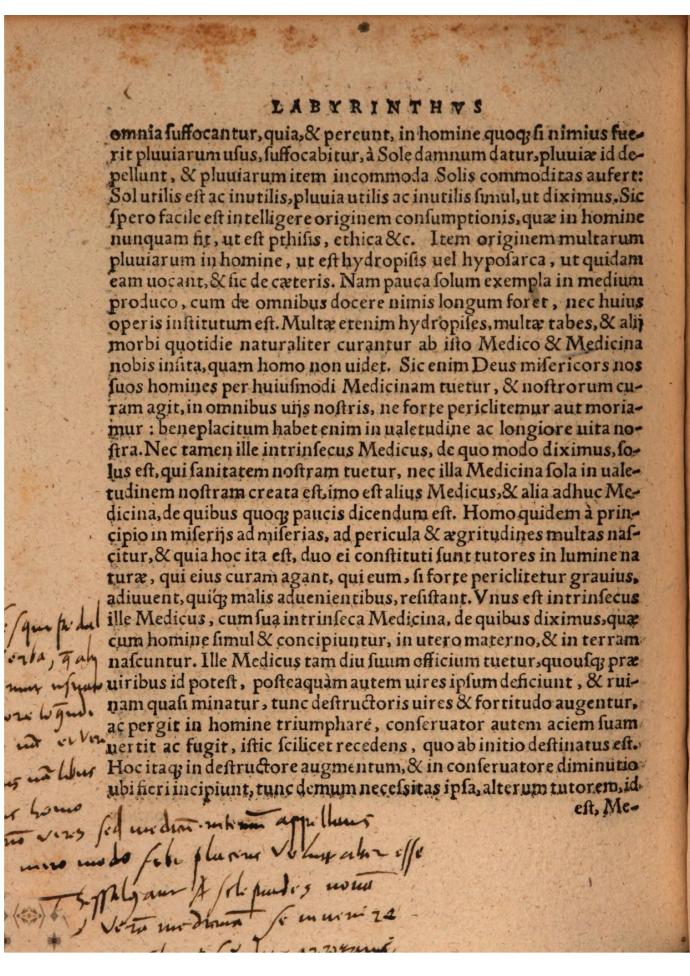 LABYRINTHVS
omnia suffocantur, quia, & pereunt, in homine quoq; si nimius fue-
rit pluuiarum usus, suffocabitur, à Sole damnum datur, pluuiæ id de-
pellunt, & pluuiarum item incommoda Solis commoditas aufert:
Sol utilis est ac inutilis, pluuia utilis ac inutilis simul, ut diximus. Sic
spero facile est intelligere originem consumptionis, quæ in homine
nunquam fit, ut est pthisis, ethica &c. Item originem multarum
pluuiarum in homine, ut est hydropisis uel hyposarca, ut quidam
eam uocant, & sic de cæteris. Nam pauca solum exempla in medium
produco, cum de omnibus docere nimis longum foret, nec huius
operis institutum est. Multæ etenim hydropises, multæ tabes, & alij
morbi quotidie naturaliter curantur ab isto Medico & Medicina
nobis insita, quam homo non uidet. Sic enim Deus misericors nos
suos homines per huiusmodi Medicinam tuetur, & nostrorum cu-
ram agit, in omnibus uijs nostris, ne forte periclitemur aut moria-
mur: beneplacitum habet enim in ualetudine ac longiore uita no-
stra. Nec tamen ille intrinsecus Medicus, de quo modo diximus, so-
lus est, qui sanitatem nostram tuetur, nec illa Medicina sola in uale-
tudinem nostram creata est, imo est alius Medicus, & alia adhuc Me-
dicina, de quibus quoq; paucis dicendum est. Homo quidem à prin-
cipio in miserijs ad miserias, ad pericula & ægritudines multas nas-
citur, & quia hoc ita est, duo ei constituti sunt tutores in lumine na
turæ, qui eius curam agant, qui eum, si forte periclitetur grauius,
adiuuent, quiq; malis aduenientibus, resistant. Vnus est intrinsecus
ille Medicus, cum sua intrinseca Medicina, de quibus diximus, quæ
cum homine simul & concipiuntur, in utero materno, & in terram
nascuntur. Ille Medicus tam diu suum officium tuetur, quousq; præ
uiribus id potest, posteaquàm autem uires ipsum deficiunt, & rui-
nam quasi minatur, tunc destructoris uires & fortitudo augentur,
ac pergit in homine triumphare, conseruator autem aciem suam
uertit ac fugit, istic scilicet recedens, quo ab initio destinatus est.
Hoc itaq; in destructore augmentum, & in conseruatore diminutio
ubi fieri incipiunt, tunc demum necessitas ipsa, alterum tutorem, id
est, Me-
homo
sed appellans
modo placere esse
se inuenire